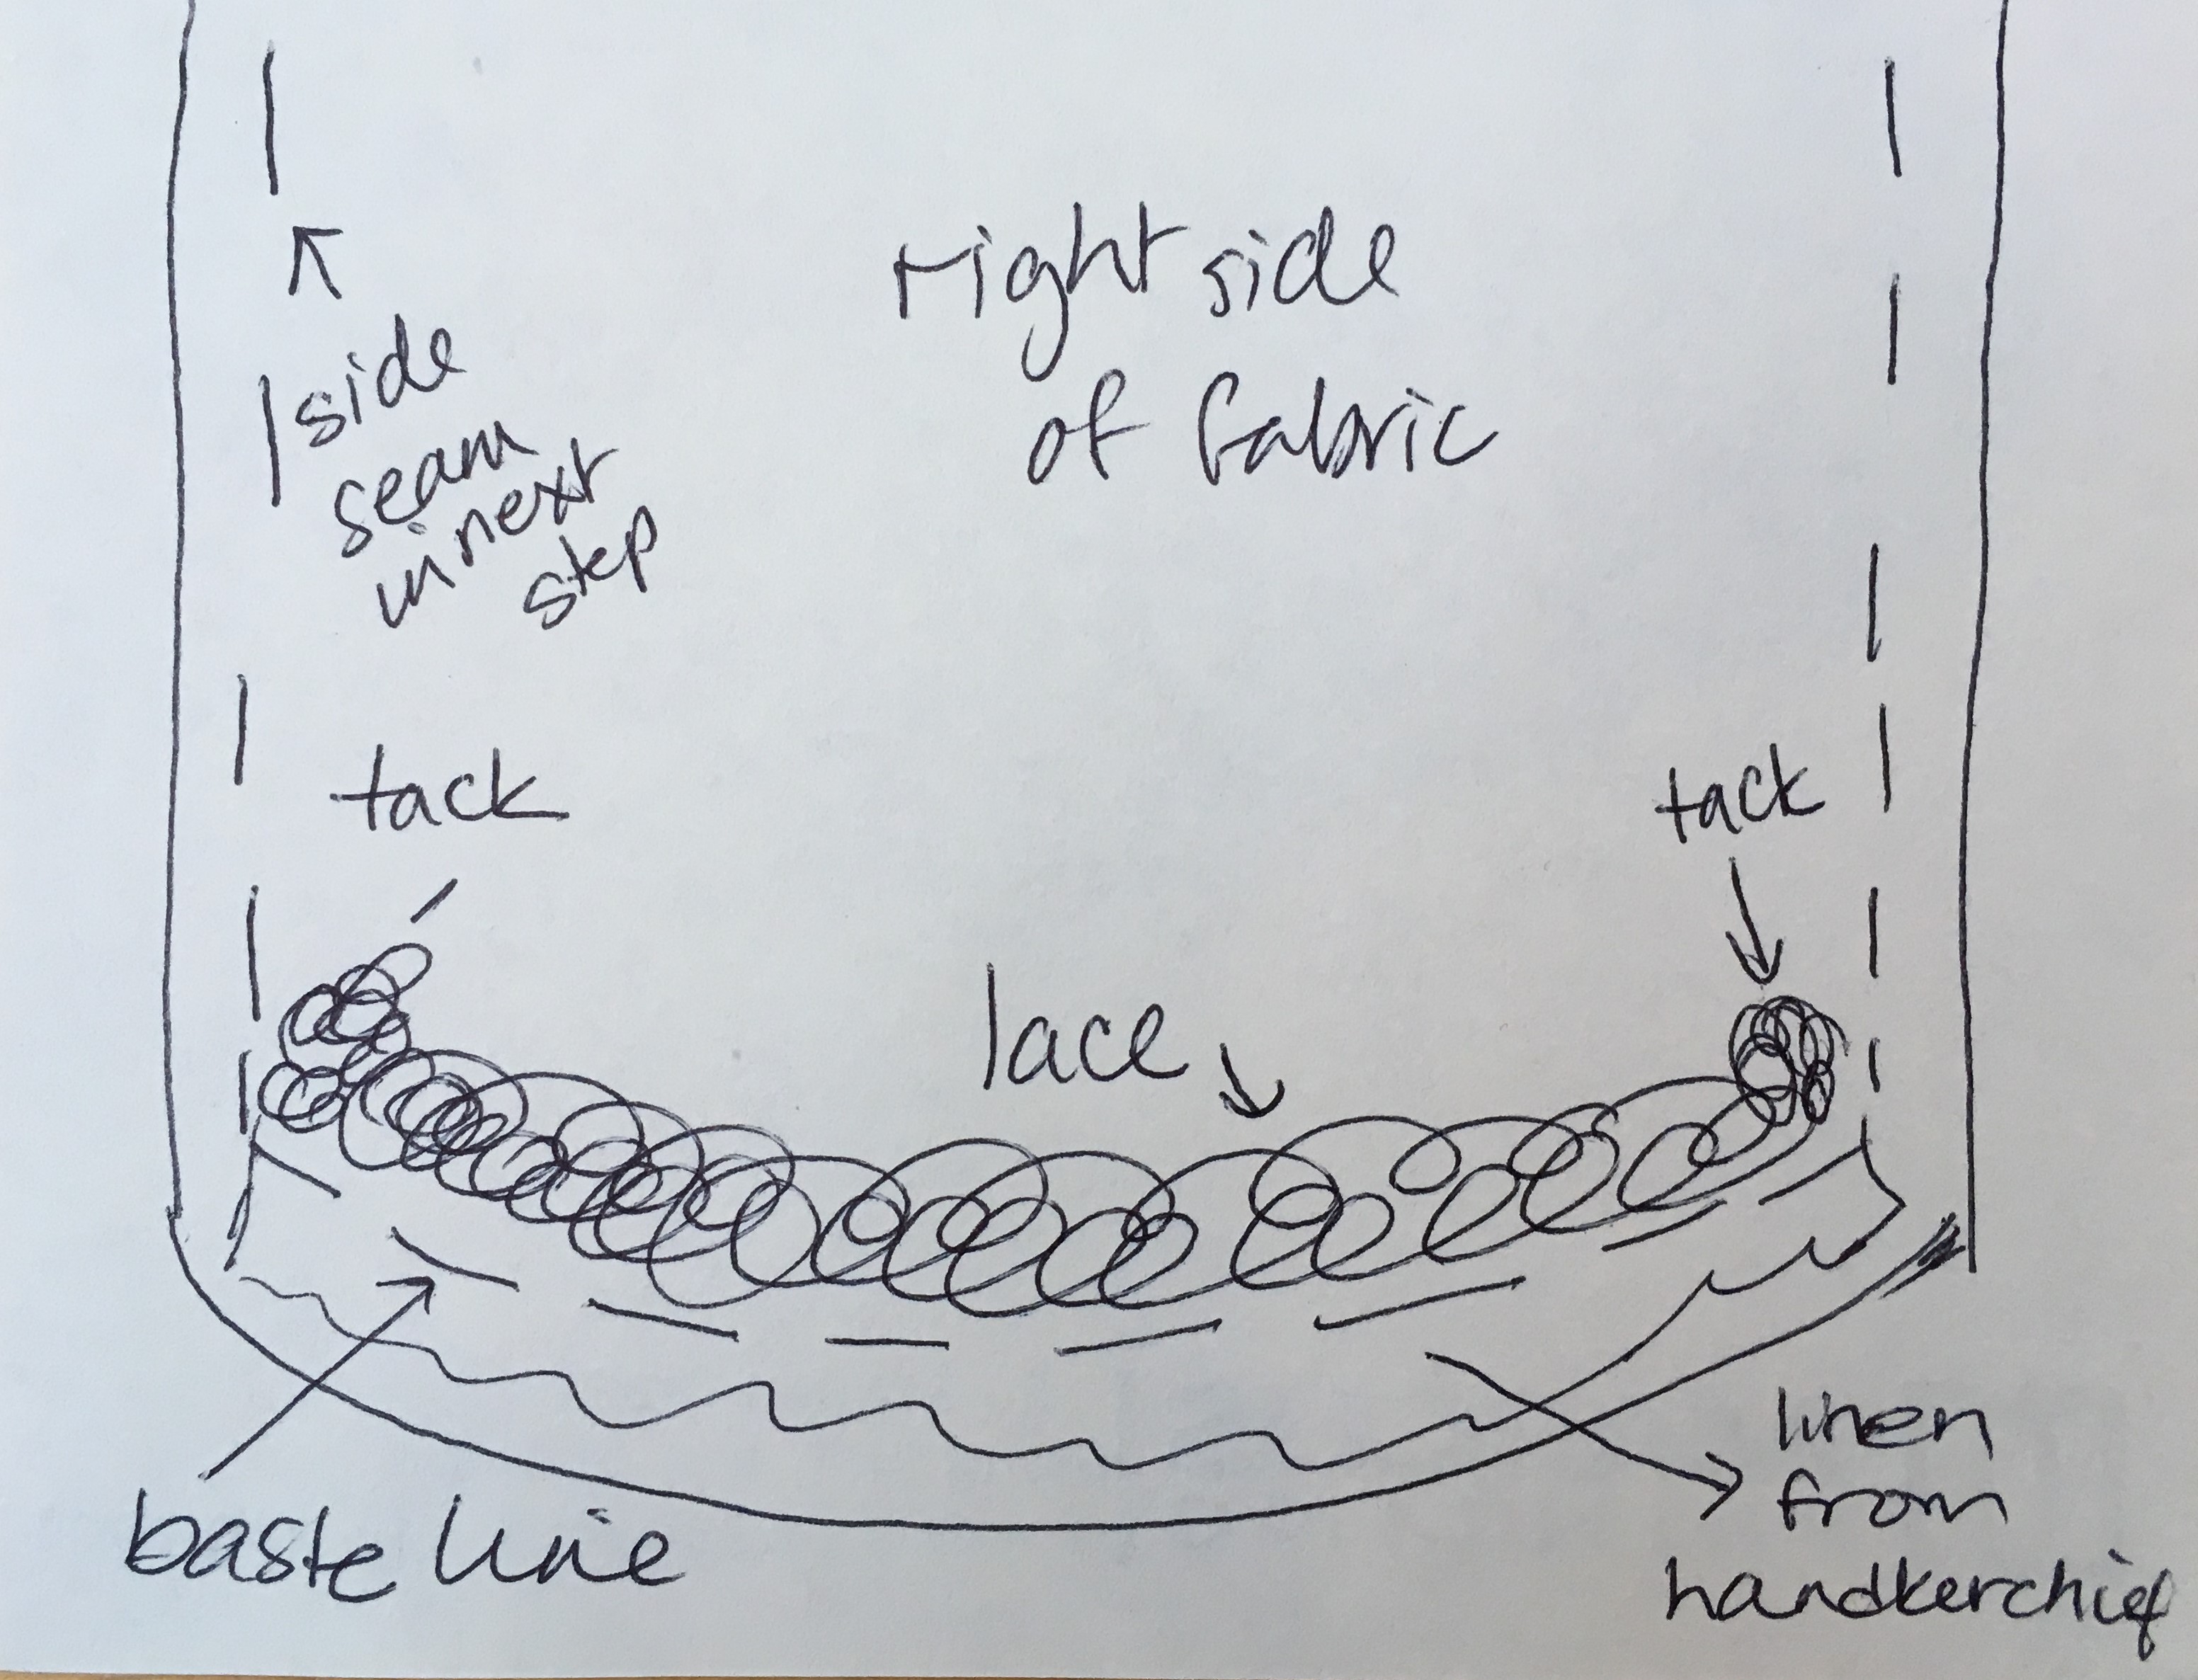 right side
of fabric
side
seam
in next
step
tack
tack
lace
baste line
linen
from
handkerchief